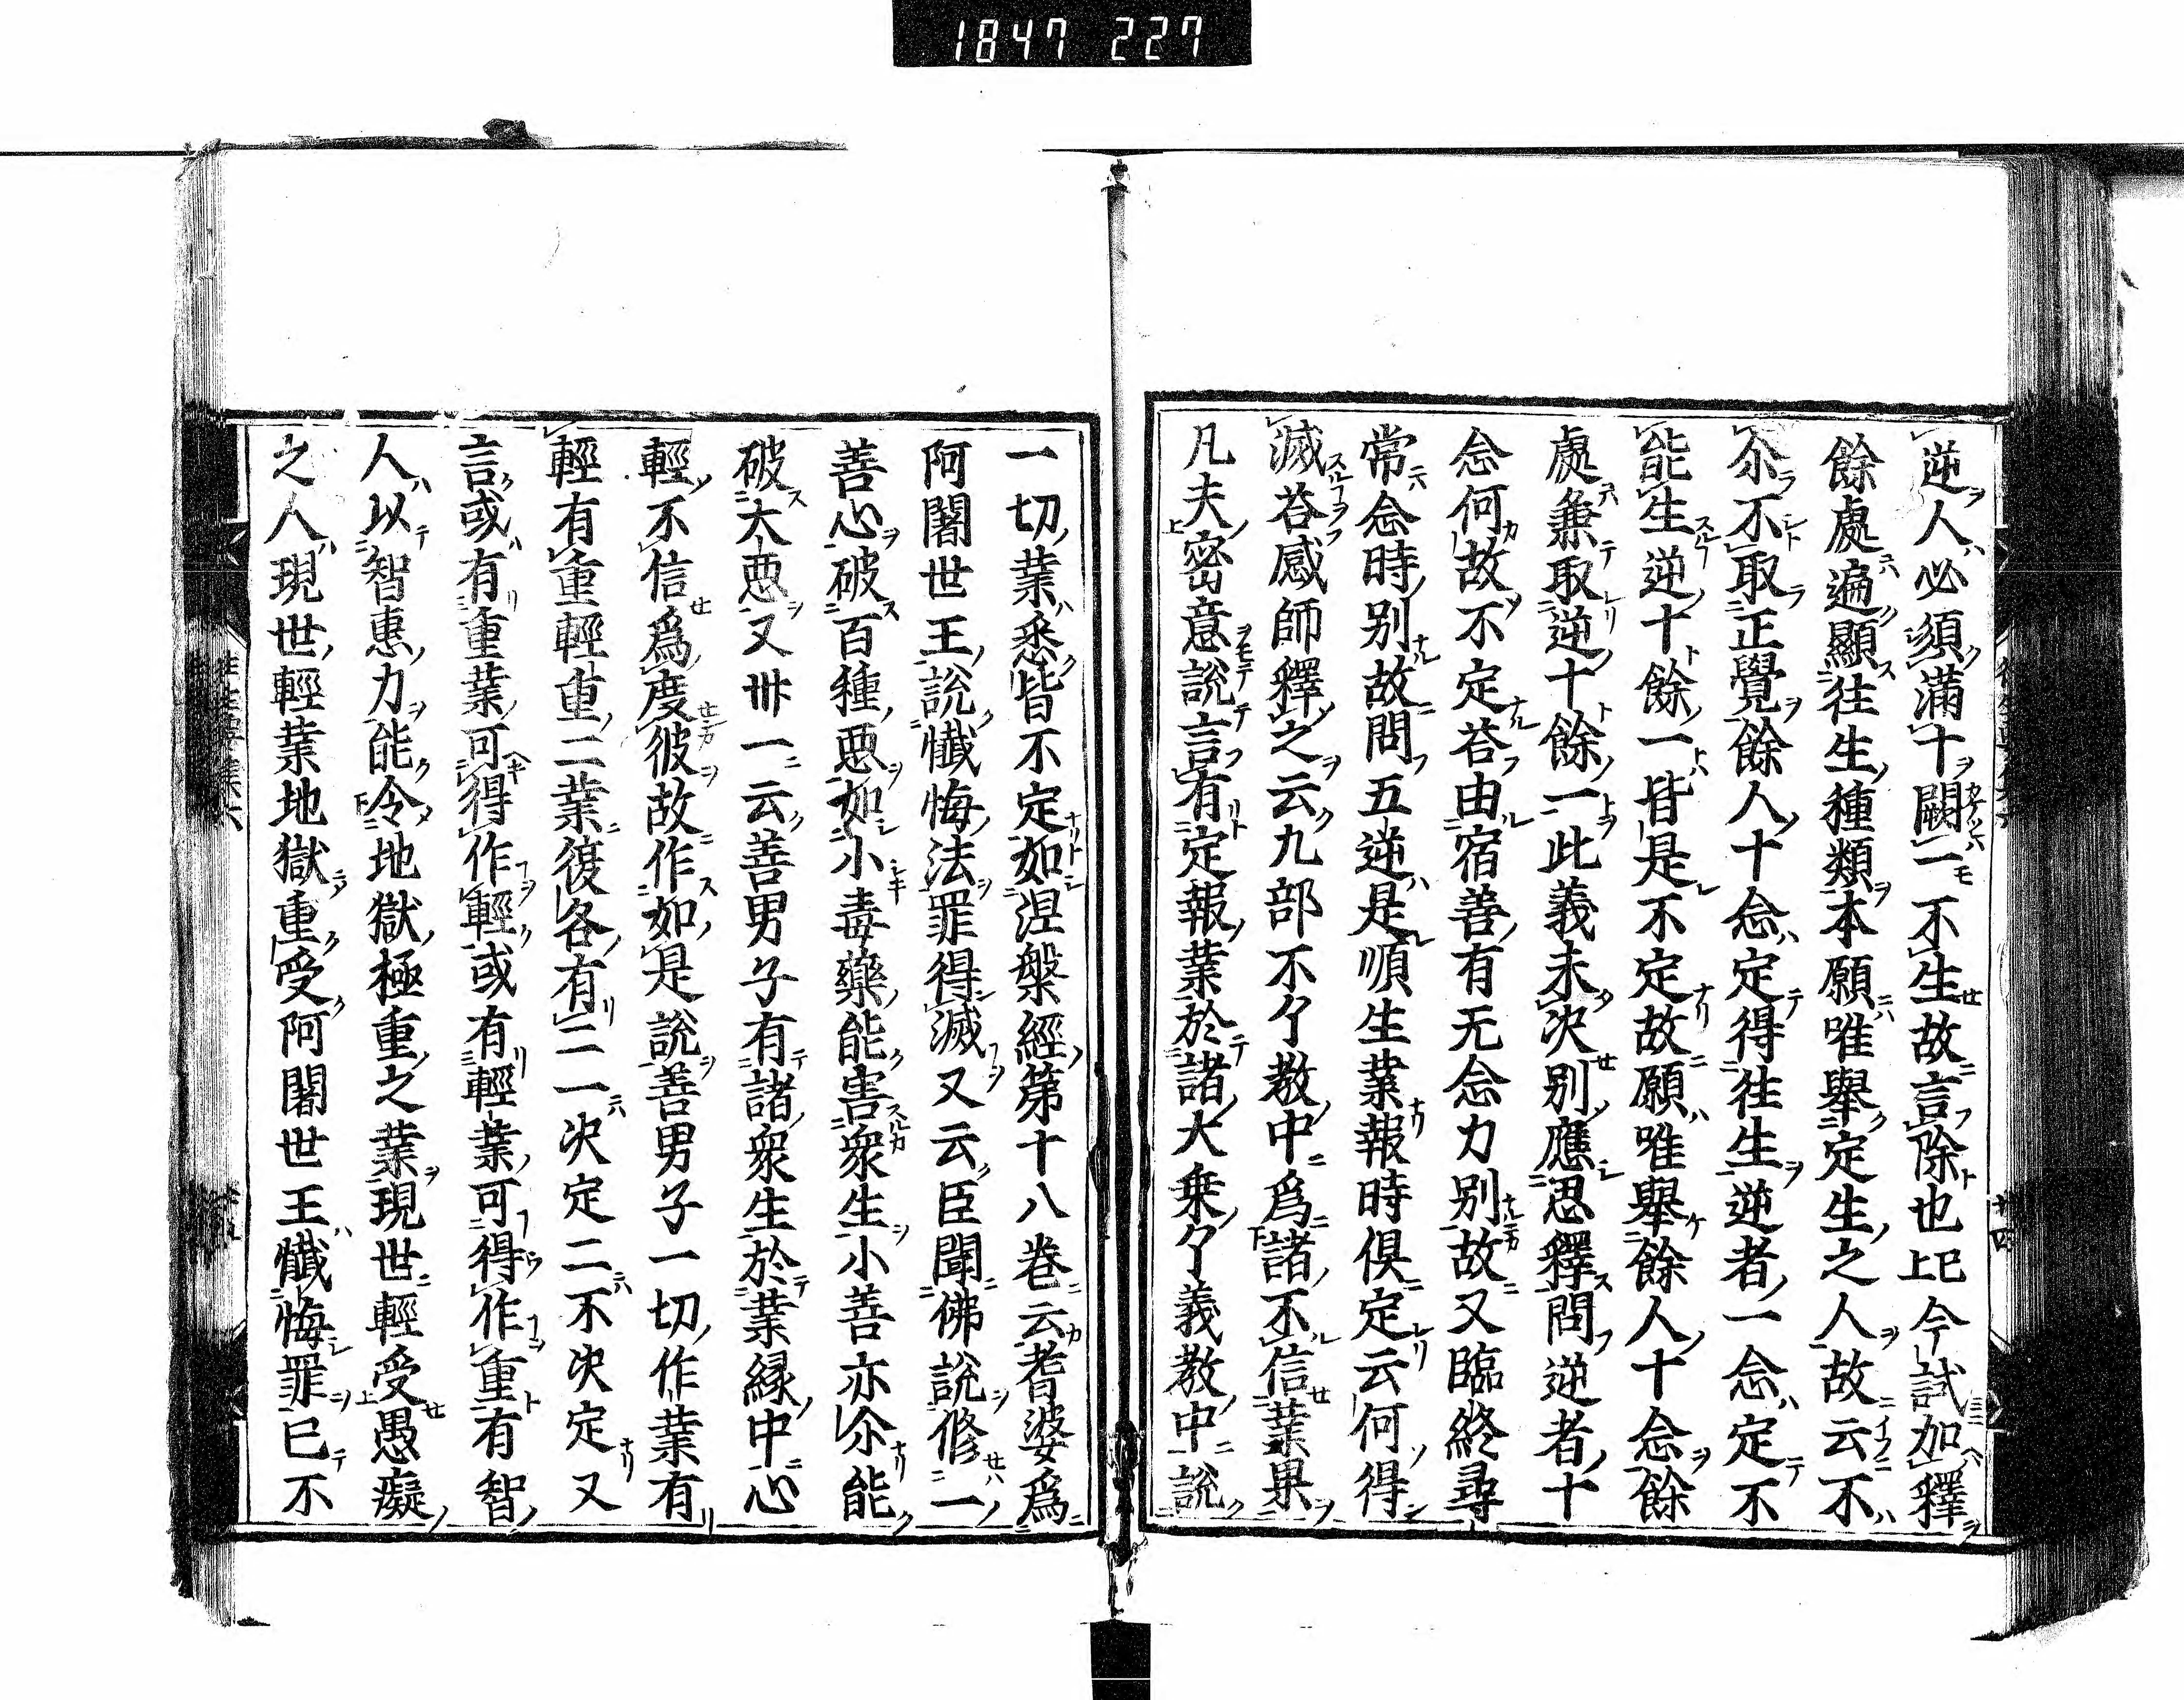 1847 227
逆人必須滿十闕一不生故言除也已上今試加釋
餘處遍顯往生種類本願唯舉定生之人故云不
尒不取正覺餘人十念定得往生逆者一念定不
能生逆十餘一皆是不定故願唯舉餘人十念餘
處兼取逆十餘一此義未决別應思釋問逆者十
念何故不定荅由宿善有无念力別故又臨終尋
常念時別故問五逆是順生業報時俱定云何得
滅荅感師釋之云九部不了敎中爲諸不信業果
凡夫密意說言有定報業於諸大乘了義敎中說
一切業悉皆不定如涅槃經第十八卷云耆婆爲
阿闍世王說懺悔法罪得滅又云臣聞佛說修一
善心破百種惡如小毒藥能害衆生小善亦尒能
破大惡又卅一云善男子有諸衆生於業緣中心
輕不信爲度彼故作如是說善男子一切作業有
輕有重輕重二業復各有二一决定二不决定又
言或有重業可得作輕或有輕業可得作重有智
人以智惠力能令地獄極重之業現世輕受愚癡
之人現世輕業地獄重受阿闍世王懺悔罪已不